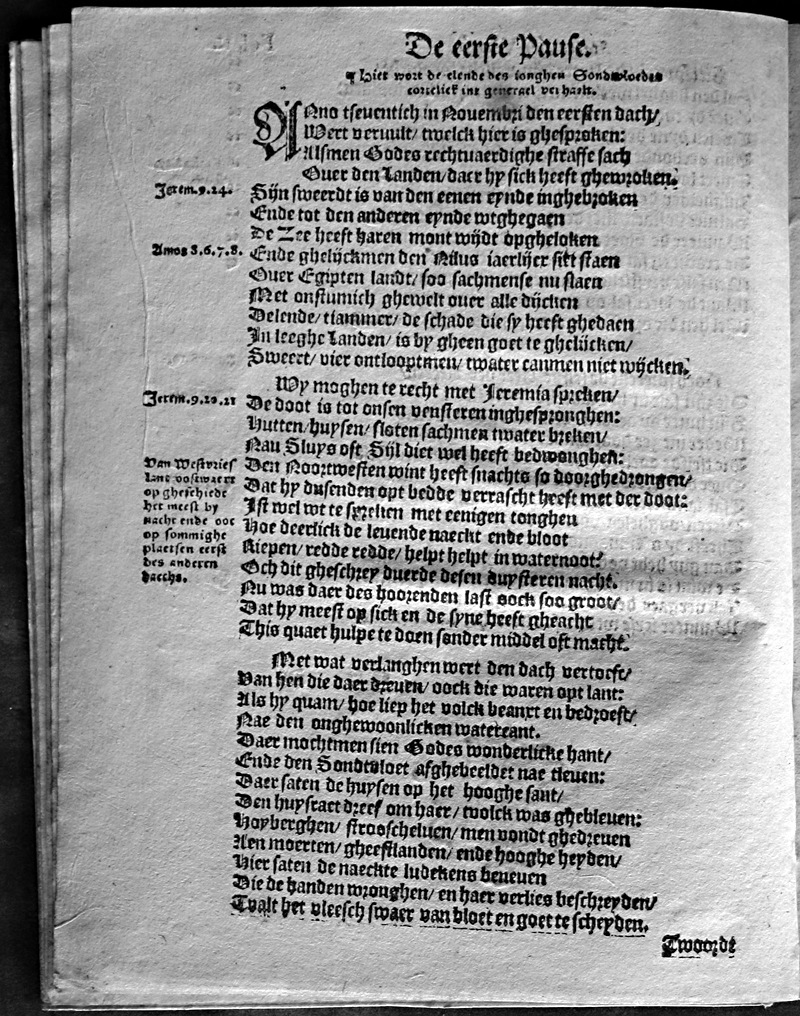 De eerste Pause.
¶ Hier wort de elende des ionghen Sondvloedes
cortelick int generael verhaelt.
ANno tseuentich in Nouembri den eersten dach/
Wert veruult/ twelck hier is ghesproken:
Alsmen Godes rechtuaerdighe straffe sach
Ouer den Landen/ daer hy sick heeft ghewroken.
Jerem. 9. 24.
Sijn sweerdt is van den eenen eynde inghebroken
Ende tot den anderen eynde wtghegaen
De Zee heeft haren mont wijdt opgheloken
Amos 8. 6. 7. 8.
Ende ghelijckmen den Nilus iaerlijcx siet staen
Ouer Egipten landt/ soo sachmense nu staen
Met onstumich ghewelt ouer alle dijcken
Delende/ tiammer/ de schade die sy heeft ghedaen
In leeghe Landen/ is by gheen goet te ghelijcken/
Sweert/ vier ontlooptmen/ twater canmen niet wijcken.
Wy moghen te recht met Jeremia spreken/
Jerem. 9. 20. 21
De doot is tot onsen vensteren inghespronghen:
Hutten/ huysen/ sloten sachmen twater breken/
Nau Sluys oft Sijl diet wel heeft bedwonghen:
Van Westvries
lant oostwaert
op gheschiede
het meest by
nacht ende ooc
op sommighe
plaetsen eerst
des anderen
daechs.
Den Noortwesten wint heeft snachts so doorghedronghen/
Dat hy dusenden opt bedde verrascht heeft met der doot:
Ist wel wt te spreken met eenigen tonghen
Hoe deerlick de leuende naeckt ende bloot
Riepen/ redde redde/ helpt helpt in waternoot:
Och dit gheschrey duerde desen duysteren nacht.
Nu was daer des hoorenden last oock soo groot/
Dat hy meest op sick en de syne heeft gheacht
This quaet hulpe te doen sonder middel oft macht.
Met wat verlanghen wert den dach vertoeft/
Van hen die daer dreuen/ oock die waren opt lant:
Als hy quam/ hoe liep het volck beanxt en bedroeft/
Nae den onghewoonlicken watercant.
Daer mochtmen sien Godes wonderlicke hant/
Ende den Sondtvloet afghebeeldet nae tleuen:
Daer saten de huysen op het hooghe sant/
Den huysraet dreef om haer/ tvolck was ghebleuen:
Hoyberghen/ strooscheluen/ men vondt ghedreuen
Aen moerten/ gheestlanden/ ende hooghe heyden/
Hier saten de naeckte ludekens beneuen
Die de handen wronghen/ en haer verlies beschreyden/
Tvalt het vleesch swaer van bloet en goet te scheyden.
Twoordt